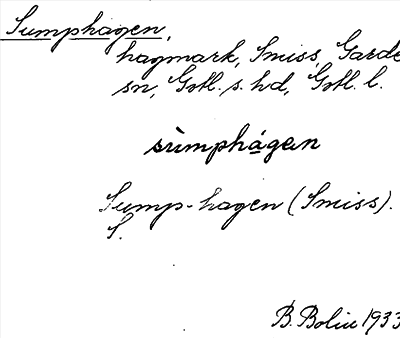 Sumphagen,
hagmark, Smiss, Garde
sn, Gotl. s. hd, Gotl. l.
sùmphágen
Sump-hagen (Smiss).
S.
B. Bolin 1933